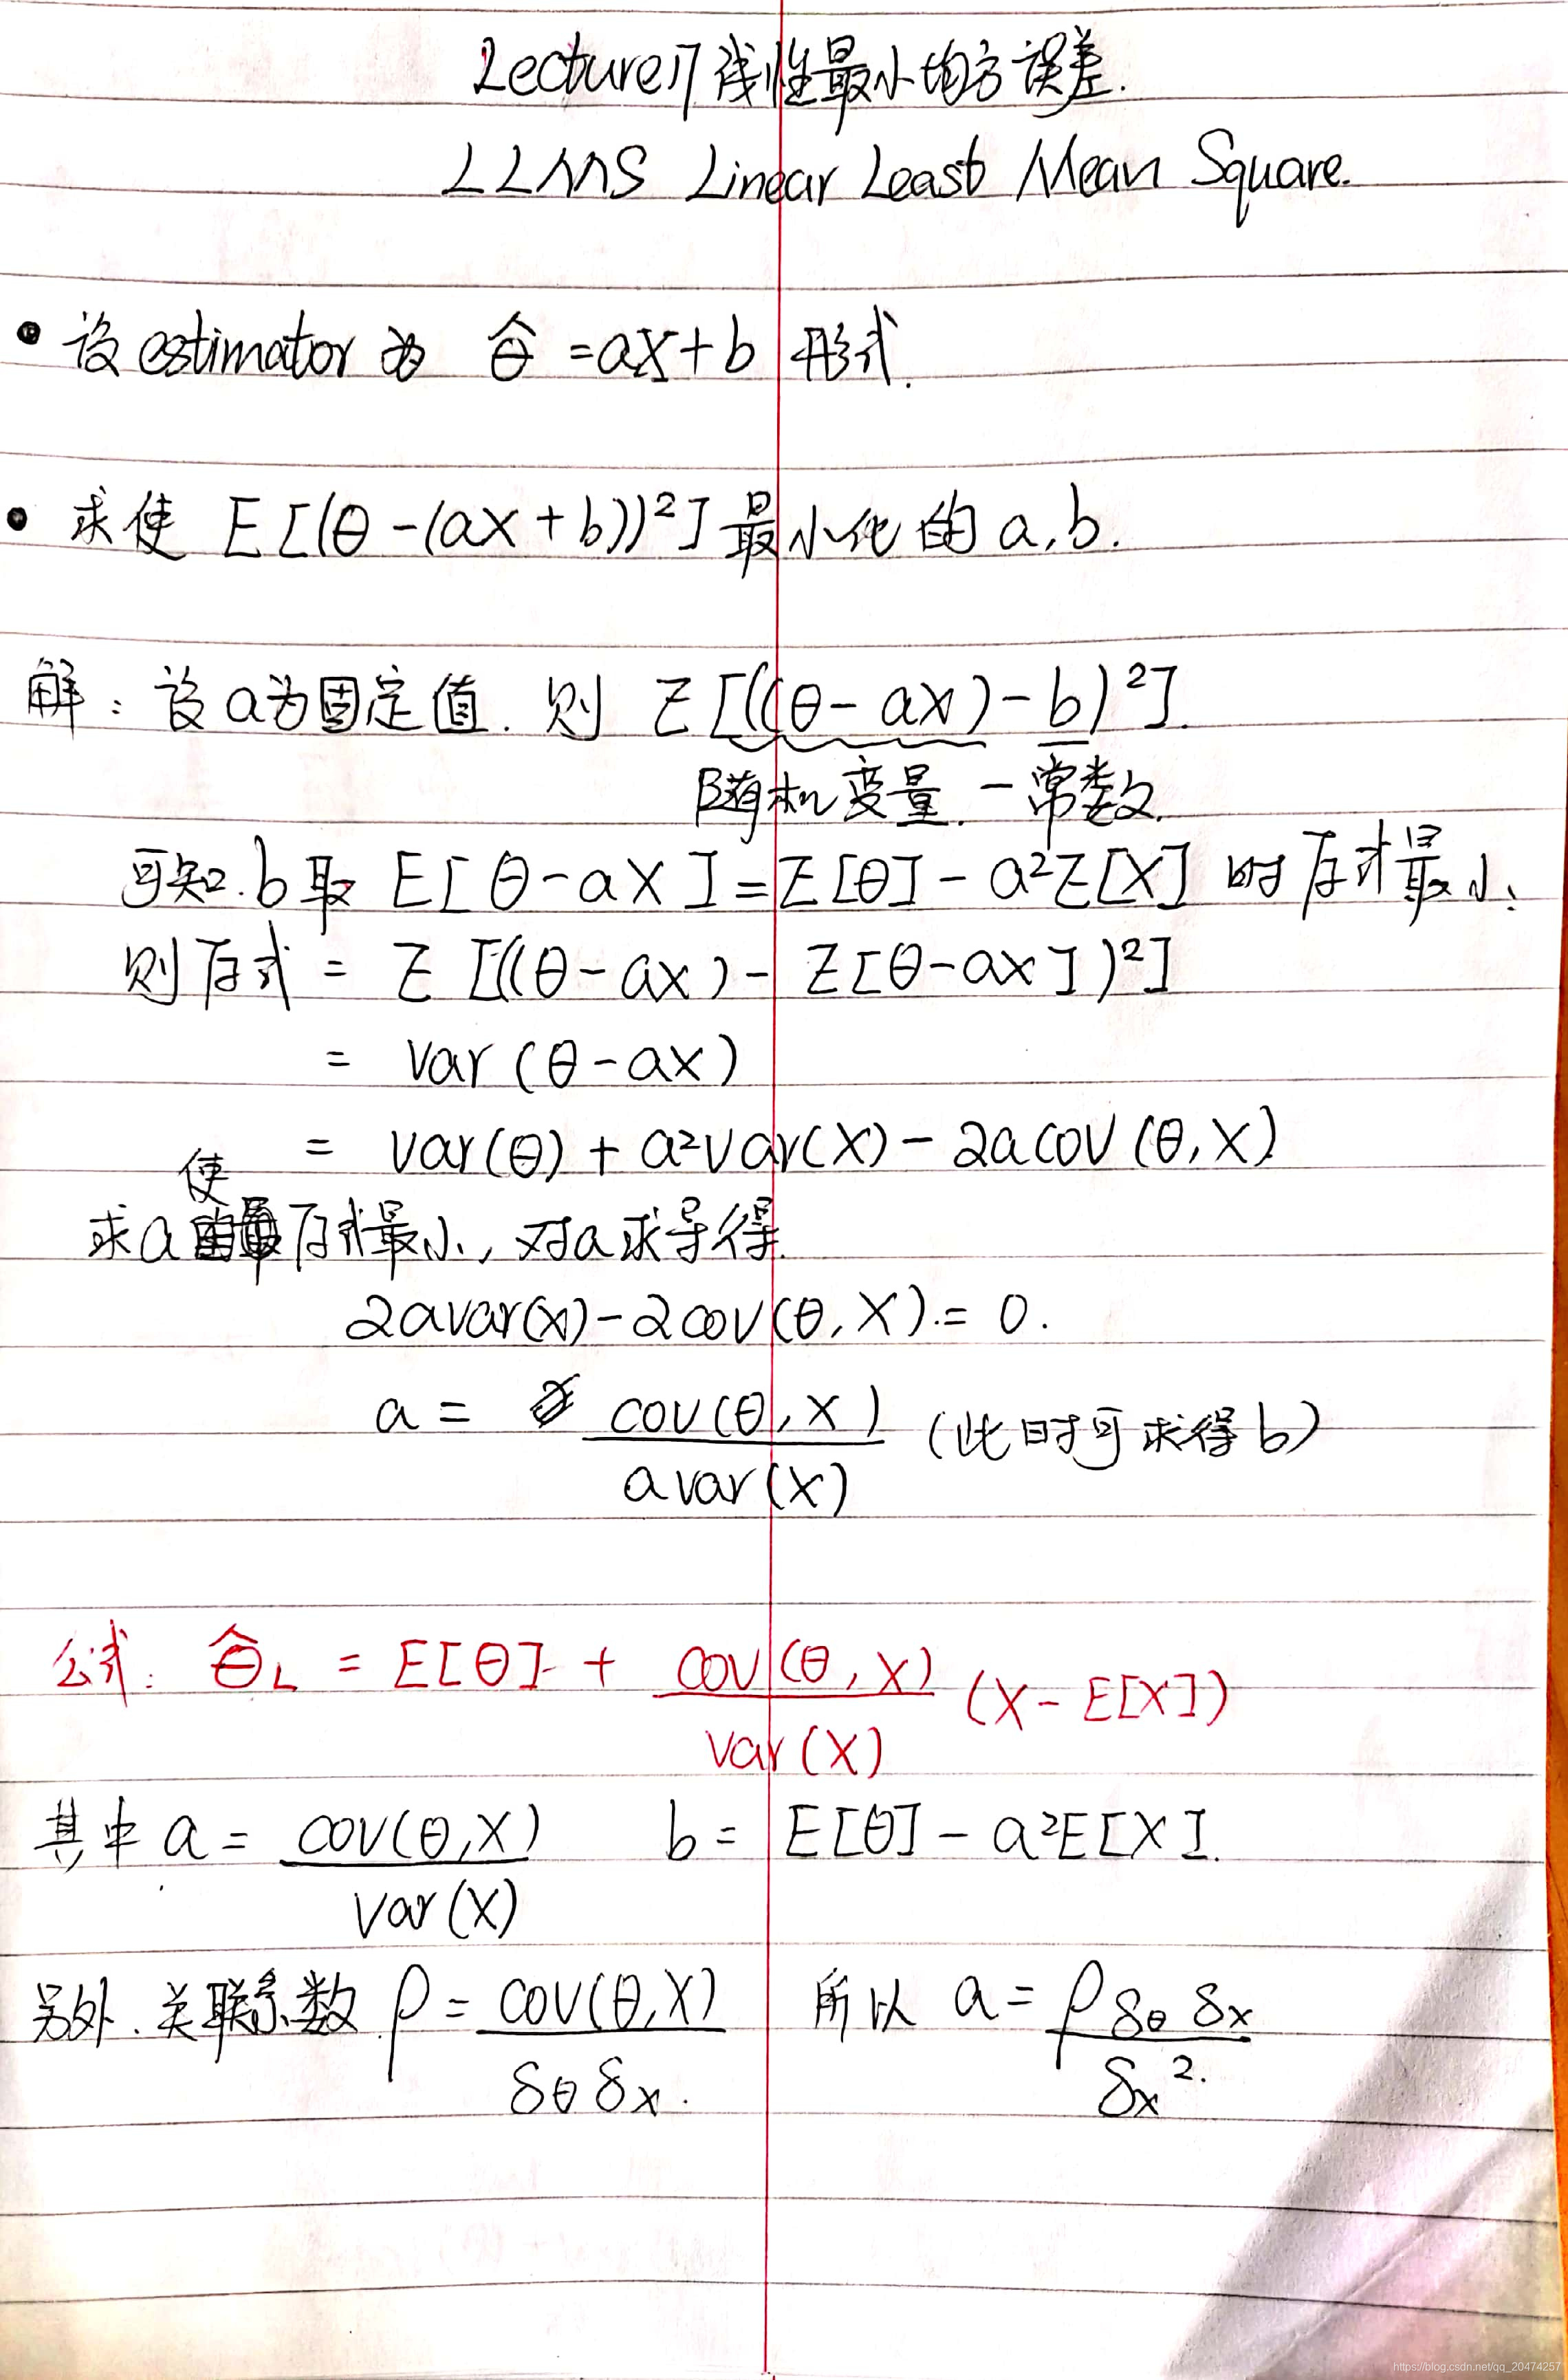 Lecture17 线性最小均方误差.
LLMS Linear Least Mean Square.
• 设 estimator 为 θ̂ = aX+b 形式.
• 求使 E[(θ-(aX+b))²] 最小化的 a,b.
解: 设 a 为固定值. 则 E[((θ-aX)-b)²].
随机变量. 一常数.
可知. b 取 E[θ-aX] = E[θ] - a²E[X] 时原式最小.
则原式 = E[((θ-aX) - E[θ-aX])²]
= var(θ-aX)
= var(θ) + a²var(X) - 2acov(θ,X)
求 a 使原式最小, 对 a 求导得.
2avar(X) - 2cov(θ,X) = 0.
a = cov(θ,X) / avar(X) (此时可求得 b)
公式: θ̂L = E[θ] + cov(θ,X) / var(X) (X - E[X])
其中 a = cov(θ,X) / var(X) b = E[θ] - a²E[X].
另外. 关联系数 ρ = cov(θ,X) / δθ δx. 所以 a = ρ δθ δx / δx².
https://blog.csdn.net/qq_20474257